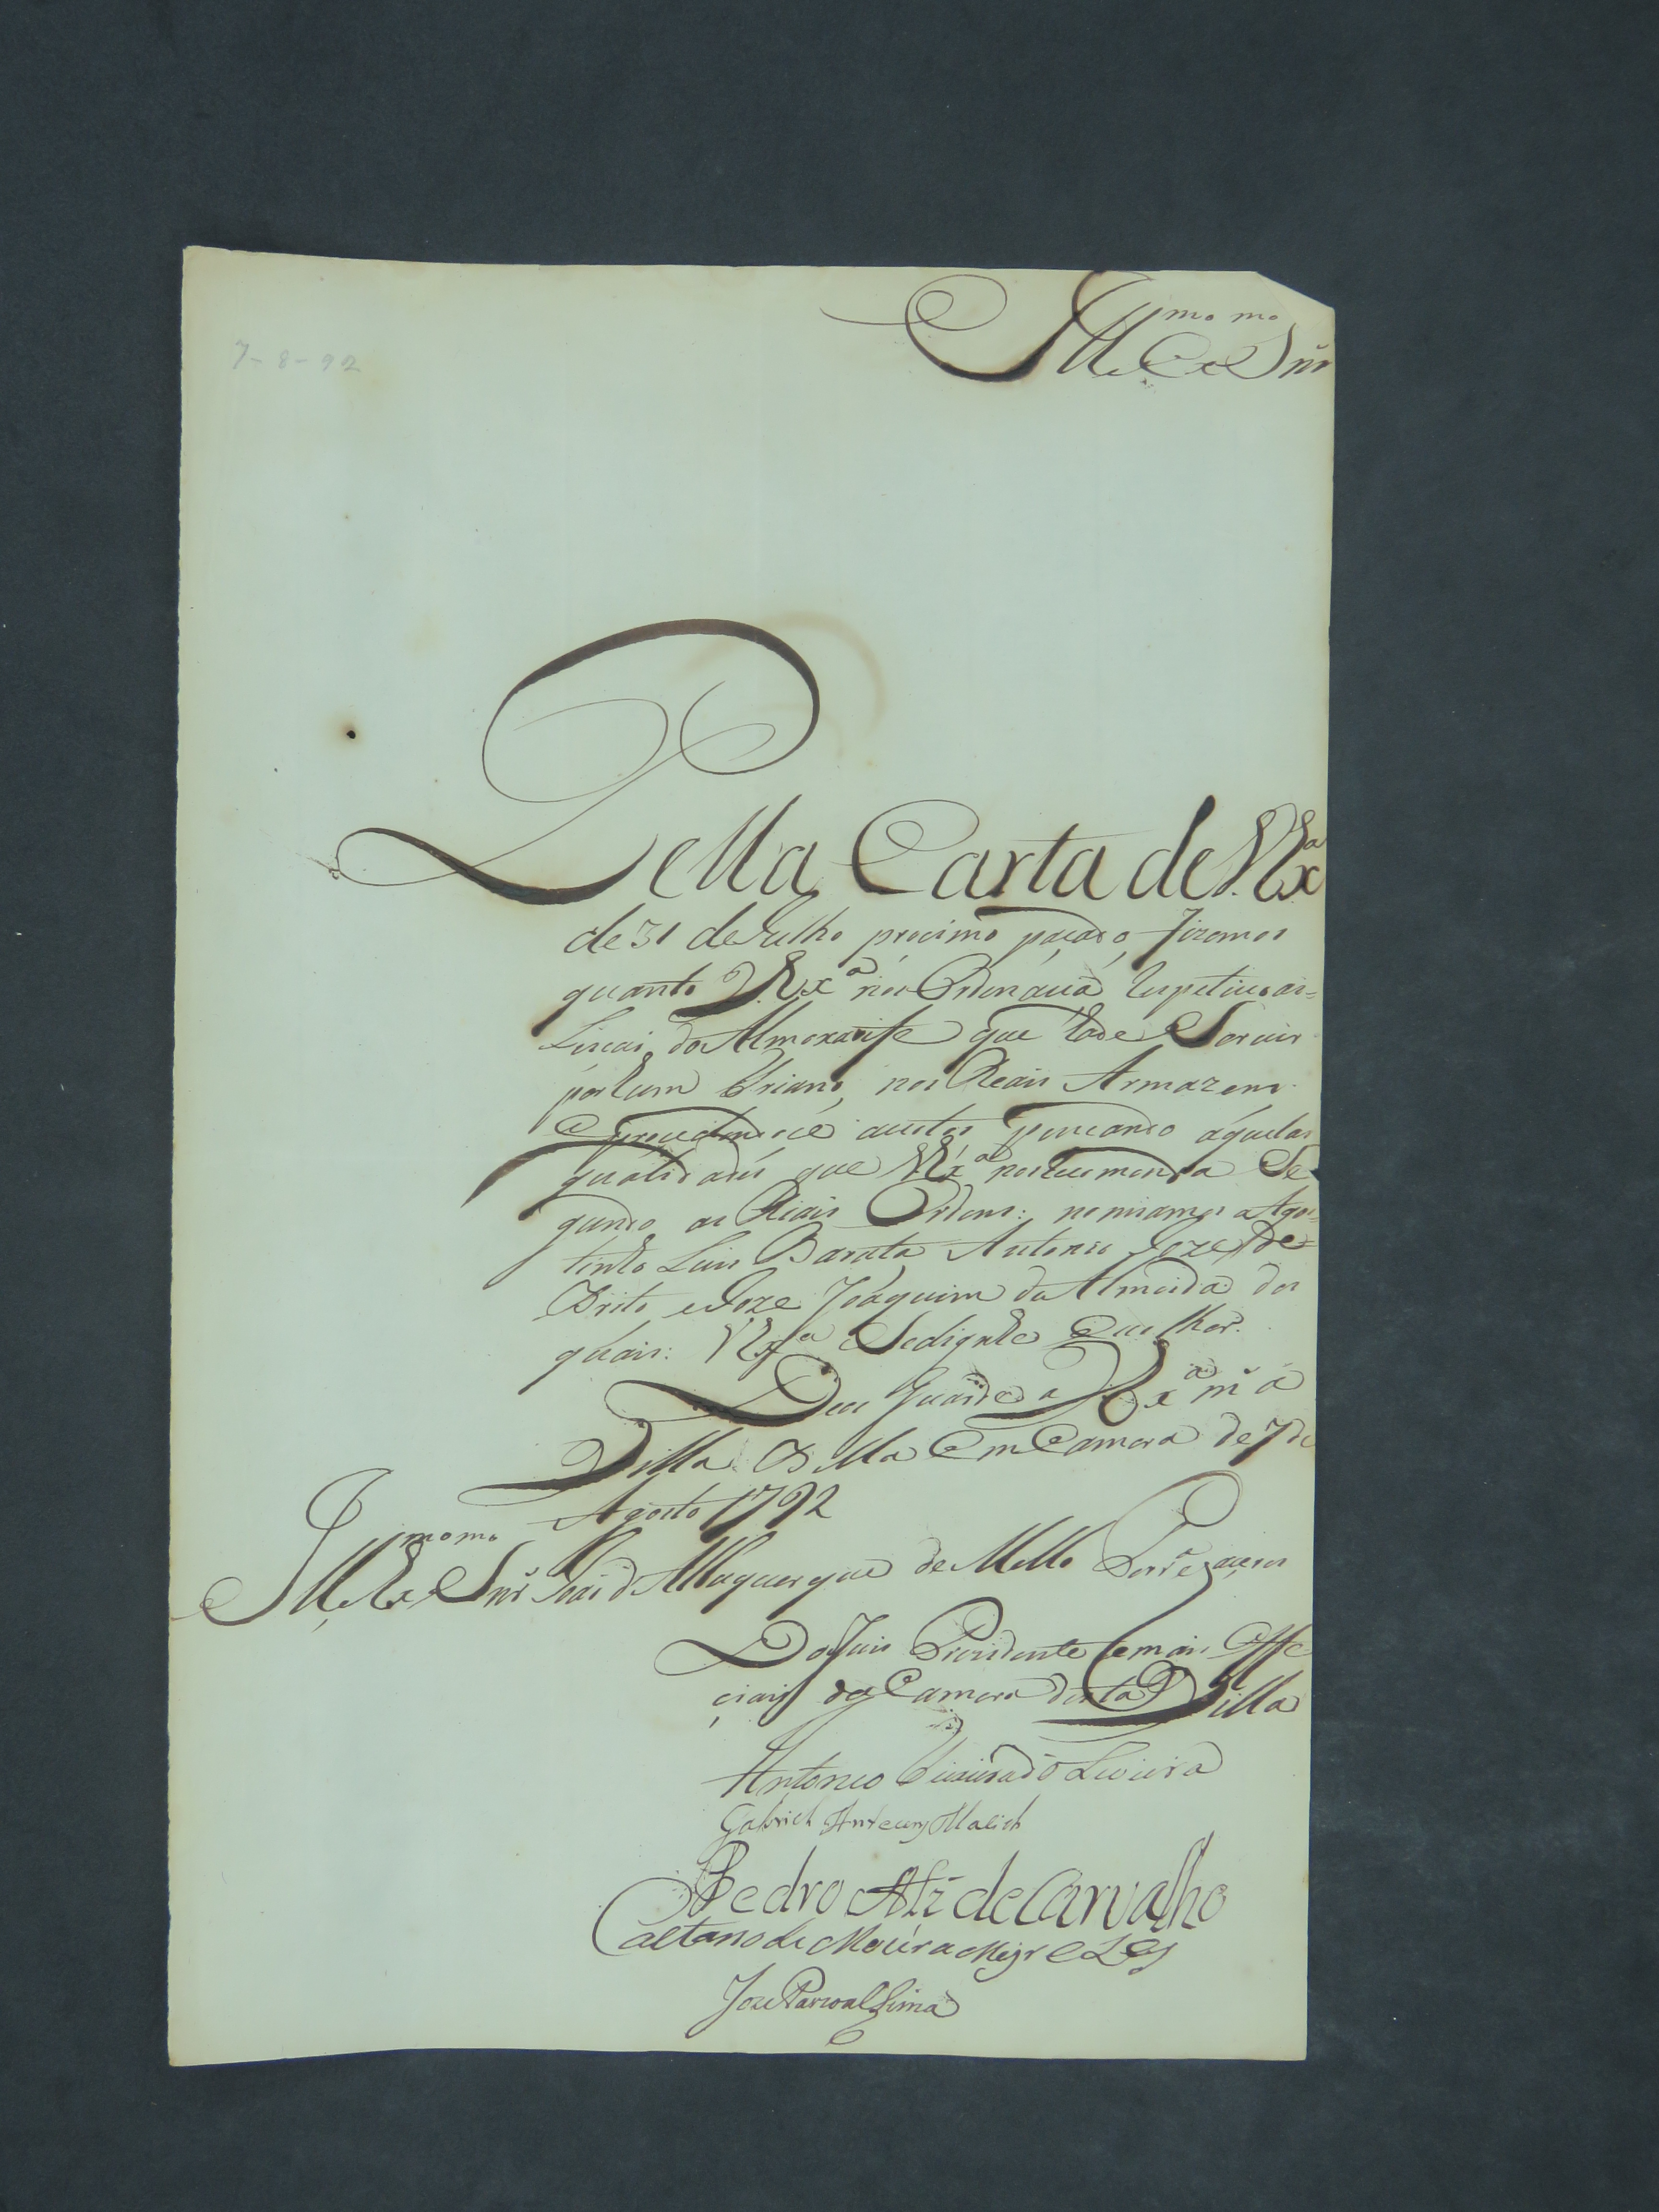 7-8-92
Ill.mo e Ex.mo Snr
Pella Carta de V. Ex.a
de 31 de Julho procimo paçado, fizemos
quanto V. Ex.a nos Ordenava
do Almoxarife que hade Servir
por hum Trianio, nos Reais Armazens.
áquelas
qualidades que V. Ex.a nos Recomenda Se
gundo as Reais Ordens: nomiamos a Agos=
tinho Luis Barata Antonio Joze de=
Brito e Joze Joáquim de Almeida dos
quais: V. Ex.a Sedignhe Escolher.
Deos Guarde a V. Ex.a m.s a
Villa Bella Em Camara de 7 de
Agosto 1792
Ill.mo e Ex.mo Snr João d Albuquerque de Mello Per.ra Caçeres
Do Juis Prezidente e mais Offe
ciais da Camara desta Villa
Antonio
Gabriel Antunes Maciel
Pedro Alz de Carvalho
Caetano de Moura Megreles
Joze Pascoal Lima